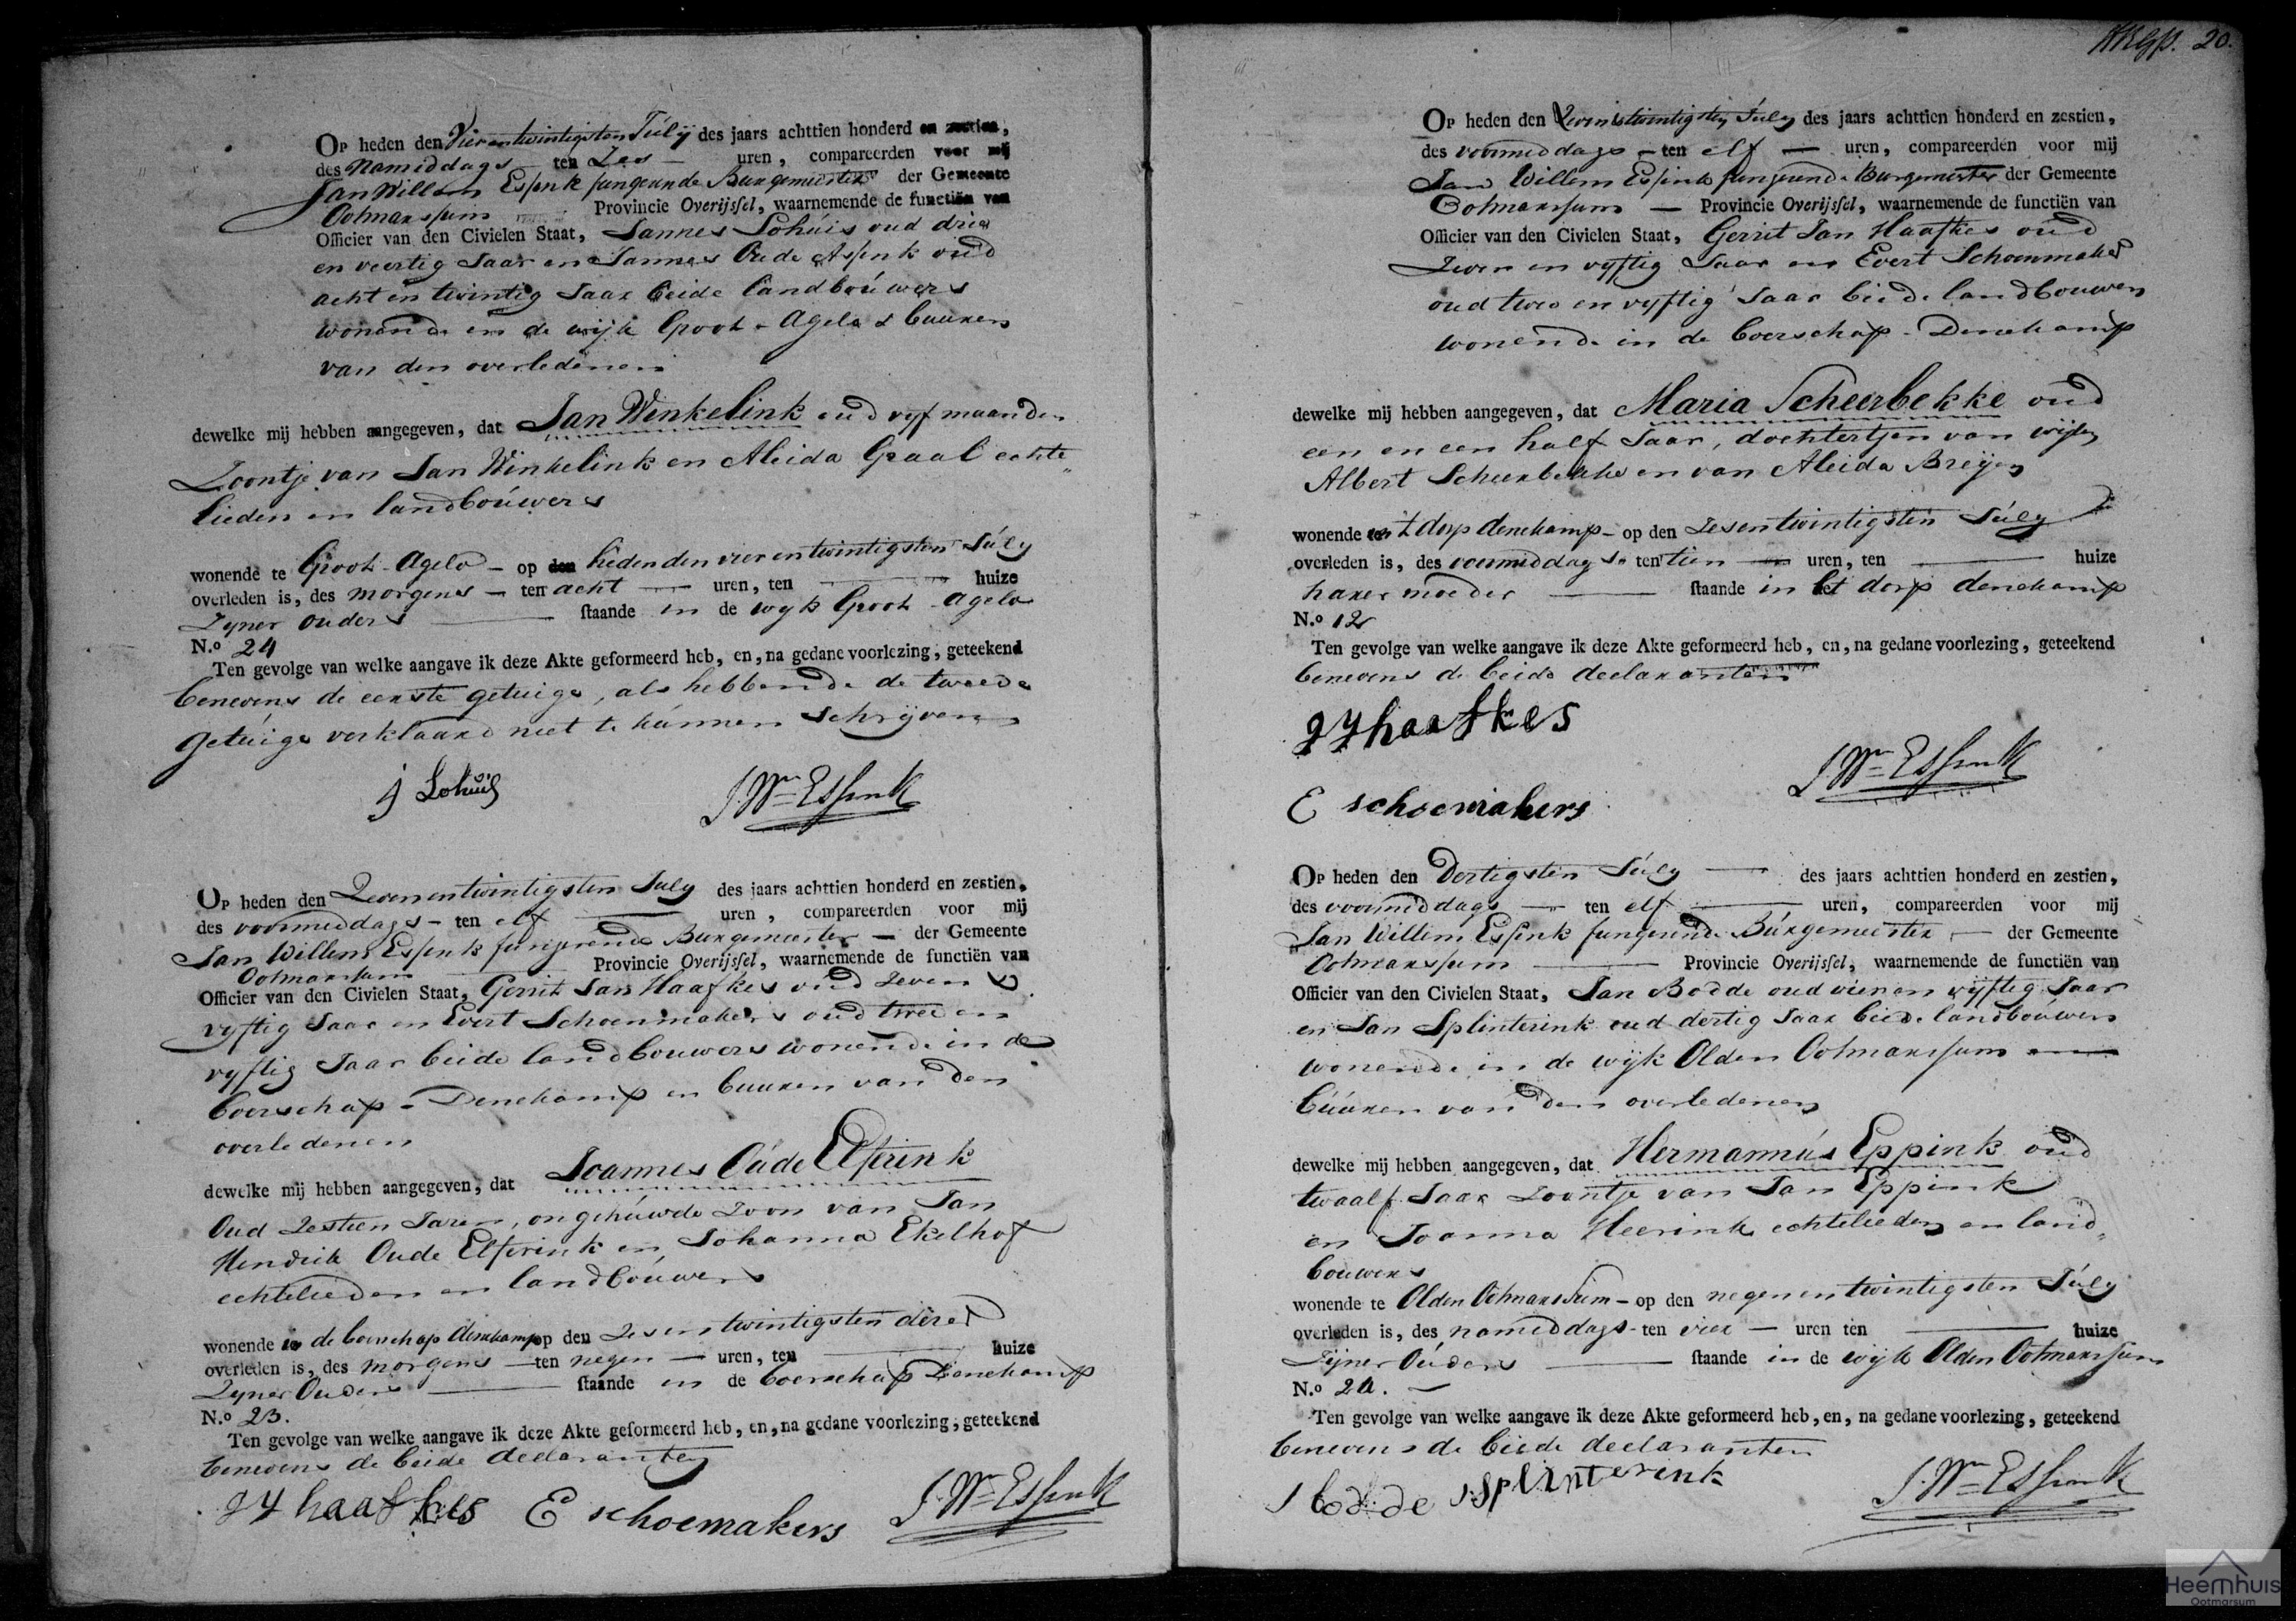 Op heden den Vierentwintigsten Julÿ des jaars achttien honderd en zestien,
des Namiddags ten Zes uren, compareerden voor mij
Jan Willem Essink fungerende Burgemeester der Gemeente
Ootmarssum Provincie Overijssel, waarnemende de functiën van
Officier van den Civielen Staat, Jannes Lohúis oud drie
en veertig Jaar en Jannes Oude Assink oud
acht en twintig Jaar beide landboúwers
wonende in de wijk Groot-Agelo & buuren
van den overledenen
dewelke mij hebben aangegeven, dat Jan Winkelink oud vyf maanden
Zoontje van Jan Winkelink en Aleida Graal echte„
lieden en landboúwers
wonende te Groot-Agelo - op den heden den vier en twintigsten Júly
overleden is, des morgens - ten acht uren, ten huize
Zyner ouders staande in de wyk Groot-Agelo
N.o 24
Ten gevolge van welke aangave ik deze Akte geformeerd heb, en, na gedane voorlezing, geteekend
benevens de eerste getuige, als hebbende de tweede
getúige verklaard niet te kúnnen schrijven
j Lohuis J. Wm Essink
Op heden den Zevenentwintigsten July des jaars achttien honderd en zestien,
des voormiddags - ten elf uren, compareerden voor mij
Jan Willem Essink fungerende Burgemeester - der Gemeente
Ootmarssum Provincie Overijssel, waarnemende de functiën van
Officier van den Civielen Staat, Gerrit Jan Haafkes oud zeven
vyftig Jaar en Evert Schoenmakers oud twee en
vyftig Jaar beide landbouwers wonende in de
boerschap - Denekamp en buuren van den
overledenen
dewelke mij hebben aangegeven, dat Joannes Oúde Elferink
Oud Zestien Jaren, ongehúwde Zoon van Jan
Hendrik Oude Elferink en Johanna Ekelhof
echtelieden en landboúwers
wonende in de boerschap Denekamp op den Zesentwintigsten dezer
overleden is, des morgens - ten negen - uren, ten huize
Zyner Ouders staande in de boerschap Denekamp
N.o 23.
Ten gevolge van welke aangave ik deze Akte geformeerd heb, en, na gedane voorlezing, geteekend
benevens de beide declaranten
g J haafkes E schoemakers J. Wm Essink
20.
Op heden den Zevenentwintigsten Júly des jaars achttien honderd en zestien,
des voormiddags - ten elf - uren, compareerden voor mij
Jan Willem Essink fungerende Burgemeester der Gemeente
Ootmarssum - Provincie Overijssel, waarnemende de functiën van
Officier van den Civielen Staat, Gerrit Jan Haafkes oud
Zeven en vyftig Jaar en Evert Schoenmakers
oud twee en vyftig Jaar beide landbouwers
wonende in de boerschap - Denekamp
dewelke mij hebben aangegeven, dat Maria Scheerbekke oud
een en een half Jaar, dochtertjen van wijlen
Albert Scheerbekke en van Aleida Breijen
wonende in 't dorp denekamp - op den Zesentwintigsten Júly
overleden is, des voormiddags ten tien uren, ten huize
harer moeder staande in het dorp denekamp
N.o 12
Ten gevolge van welke aangave ik deze Akte geformeerd heb, en, na gedane voorlezing, geteekend
benevens de beide declaranten
g J haafkes
J. Wm Essink
E schoemakers
Op heden den Dertigsten Júly des jaars achttien honderd en zestien,
des voormiddags ten elf uren, compareerden voor mij
Jan Willem Essink fungerende Búrgemeester - der Gemeente
Ootmarssum Provincie Overijssel, waarnemende de functiën van
Officier van den Civielen Staat, Jan Bodde oud vier en vijftig Jaar
en Jan Splinterink oud dertig Jaar beide landboúwers
wonende in de wijk Olden Ootmarssum en
búúren van den overledenen
dewelke mij hebben aangegeven, dat Hermannús Eppink oud
twaalf Jaar Zoontje van Jan Eppink
en Joanna Heerink echtelieden en land„
bouwers
wonende te Olden Ootmarssum - op den negenentwintigsten Júly
overleden is, des namiddags - ten vier - uren ten huize
Zijner Oúders staande in de wijk Olden Ootmarssum
N.o 20. -
Ten gevolge van welke aangave ik deze Akte geformeerd heb, en, na gedane voorlezing, geteekend
benevens de beide declaranten
J bodde J splinterink J. Wm Essink
Heemhuis
Ootmarsum